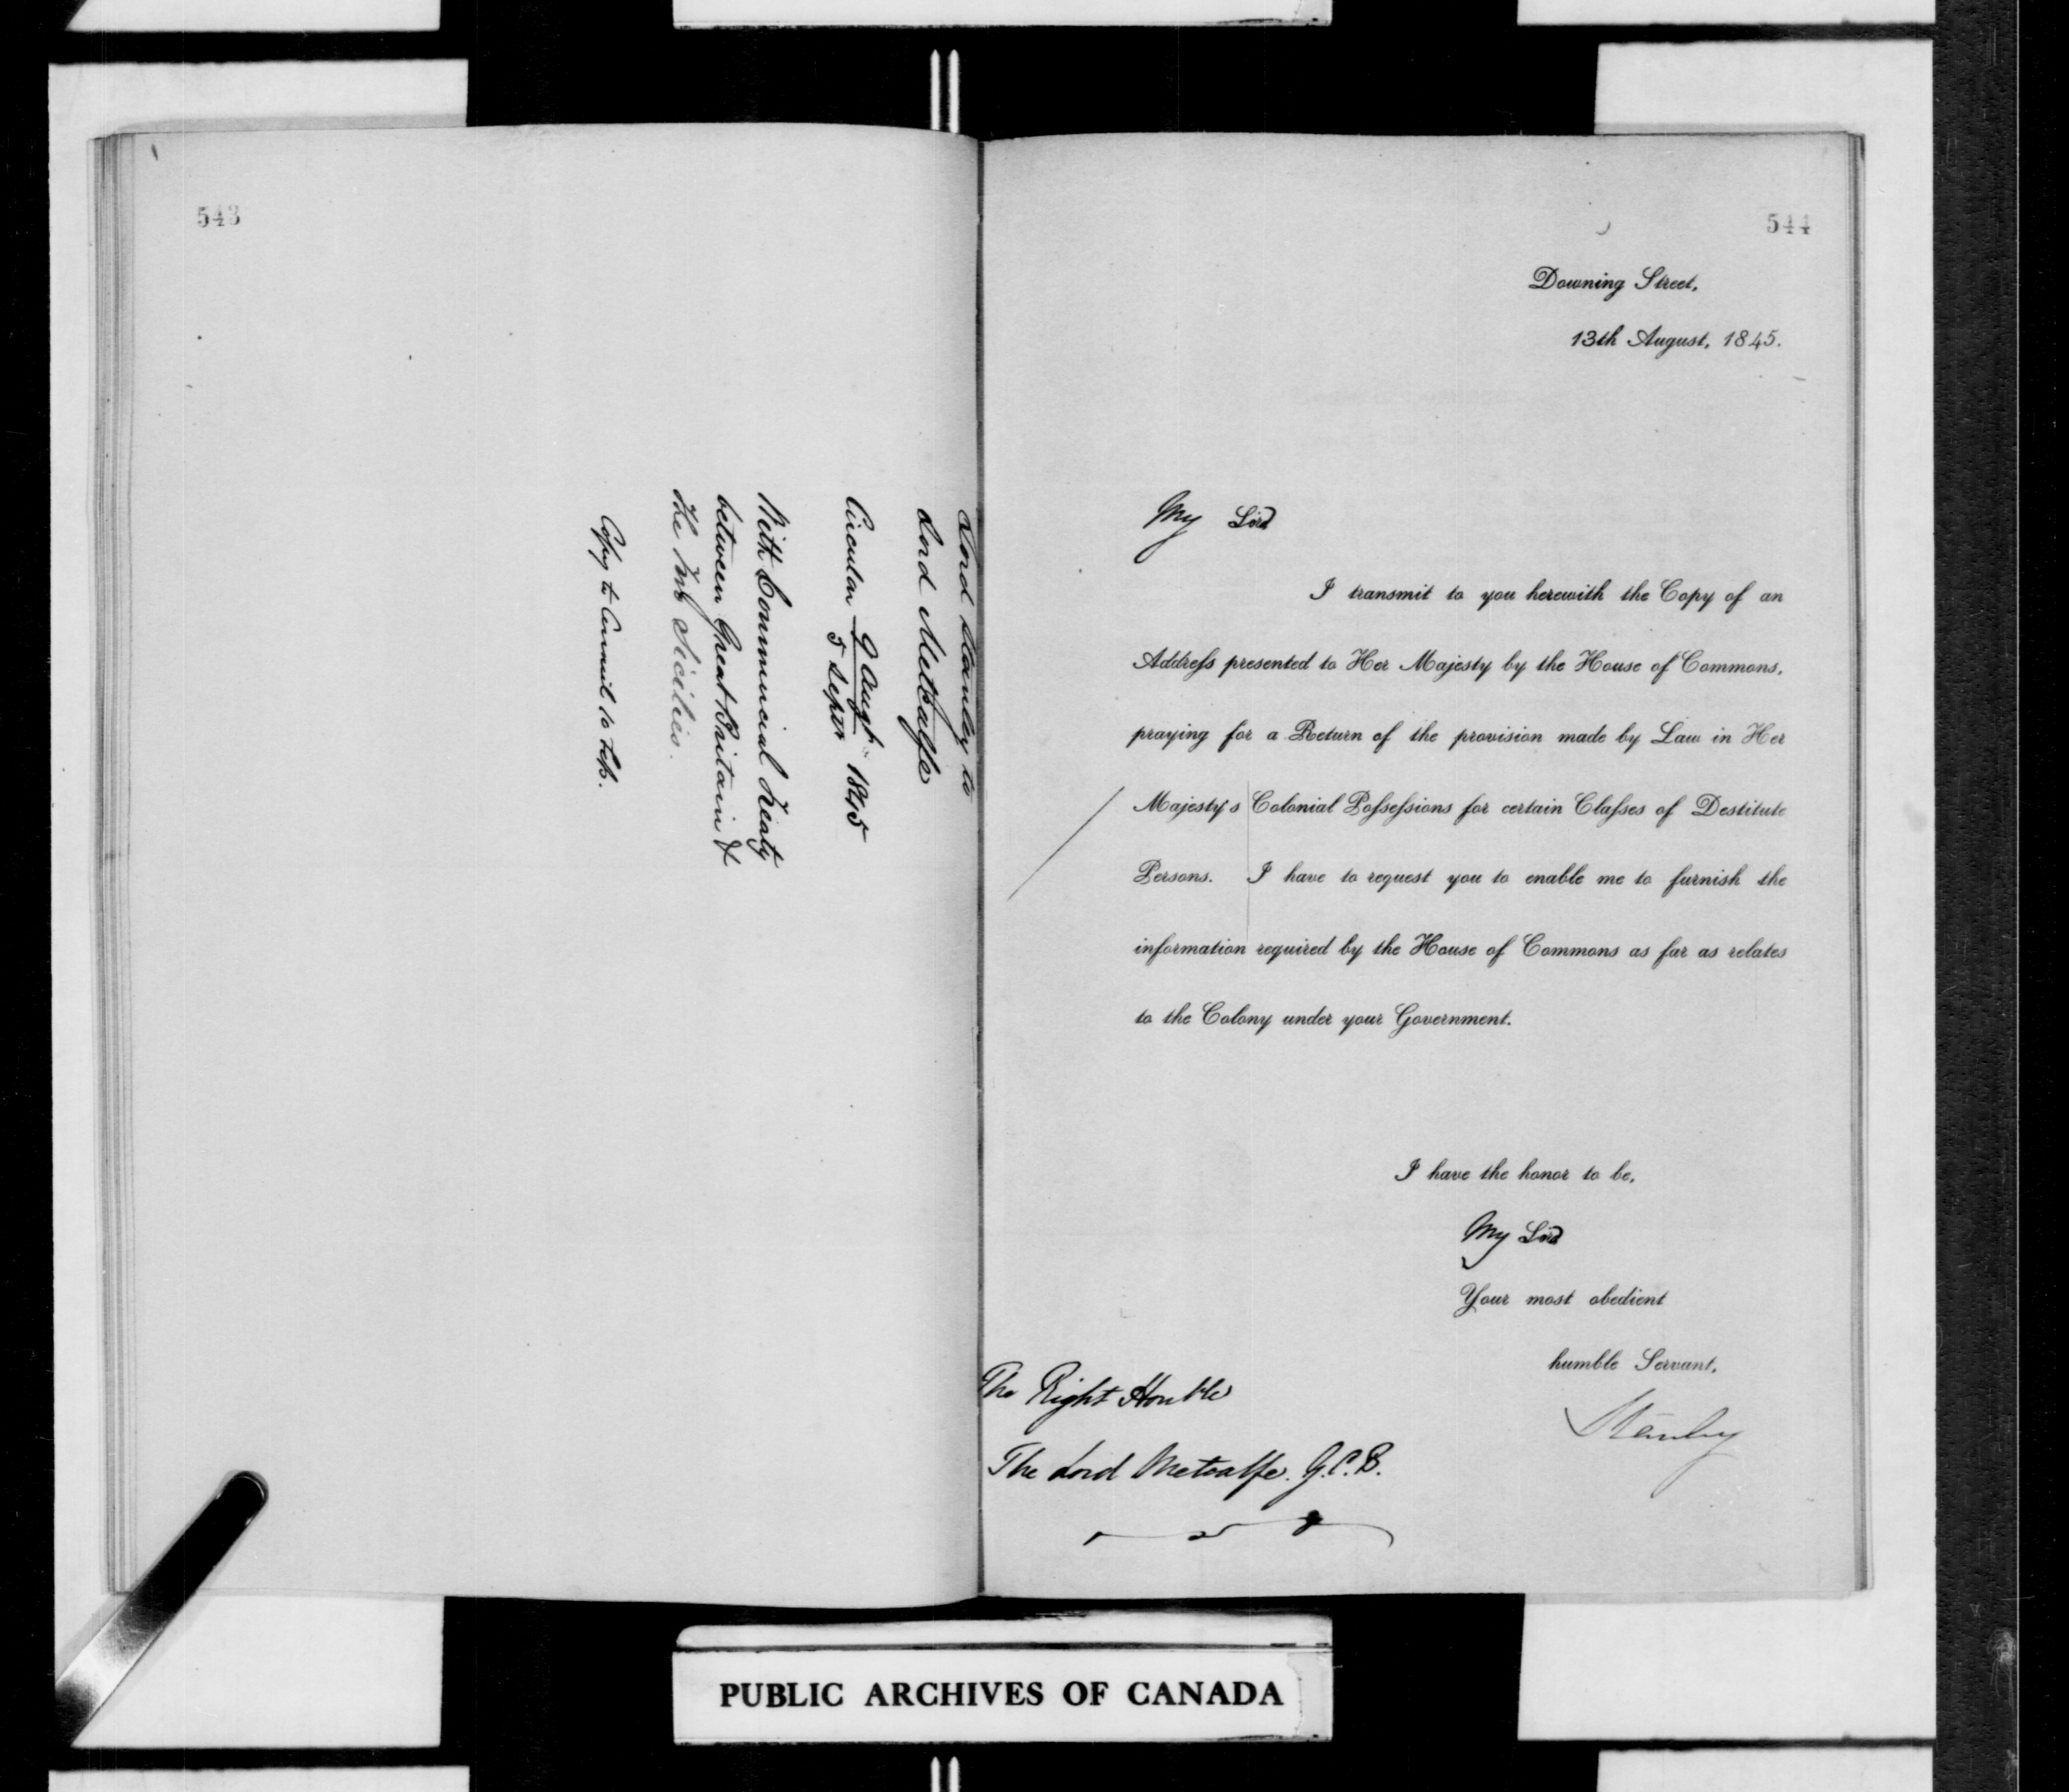 543
Lord Stanley to
Lord Metcalfe
Circular 9 Augt 1845
5 Sepr
With Commercial Treaty
between Great Britain &
the Two Sicilies.
Copy to Council 10 Feb.
544
Downing Street,
13th August, 1845.
My Lord
I transmit to you herewith the Copy of an
Addreſs presented to Her Majesty by the House of Commons,
praying for a Return of the provision made by Law in Her
Majesty's Colonial Poſseſsions for certain Claſses of Destitute
Persons. I have to request you to enable me to furnish the
information required by the House of Commons as far as relates
to the Colony under your Government.
I have the honor to be,
My Lord
Your most obedient
humble Servant,
Stanley
The Right Honble
The Lord Metcalfe. G.C.B.
PUBLIC ARCHIVES OF CANADA